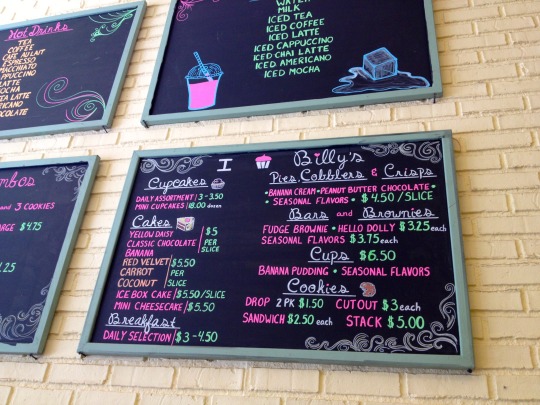 Hot Drinks
TEA
COFFEE
CAFE AU LAIT
ESPRESSO
MACCHIATO
LATTE
MOCHA
WATER
MILK
ICED TEA
ICED COFFEE
ICED LATTE
ICED CAPPUCCINO
ICED CHAI LATTE
ICED AMERICANO
ICED MOCHA
AND 3 COOKIES
$4.75
I Billy's
Cupcakes
DAILY ASSORTMENT | 3-3.50
MINI CUPCAKES | 18.00 dozen
Cakes
YELLOW DAISY
CLASSIC CHOCOLATE
BANANA
$5
PER
SLICE
RED VELVET
CARROT
COCONUT
$5.50
PER
SLICE
ICE BOX CAKE | $5.50/SLICE
MINI CHEESECAKE | $5.50
Breakfast
DAILY SELECTION | $3-4.50
Pies, Cobblers & Crisps
• BANANA CREAM • PEANUT BUTTER CHOCOLATE •
• SEASONAL FLAVORS • $4.50/SLICE
Bars and Brownies
FUDGE BROWNIE • HELLO DOLLY $3.25 each
SEASONAL FLAVORS $3.75 each
Cups $6.50
BANANA PUDDING • SEASONAL FLAVORS
Cookies
DROP 2 PK $1.50 CUTOUT $3 each
SANDWICH $2.50 each STACK $5.00